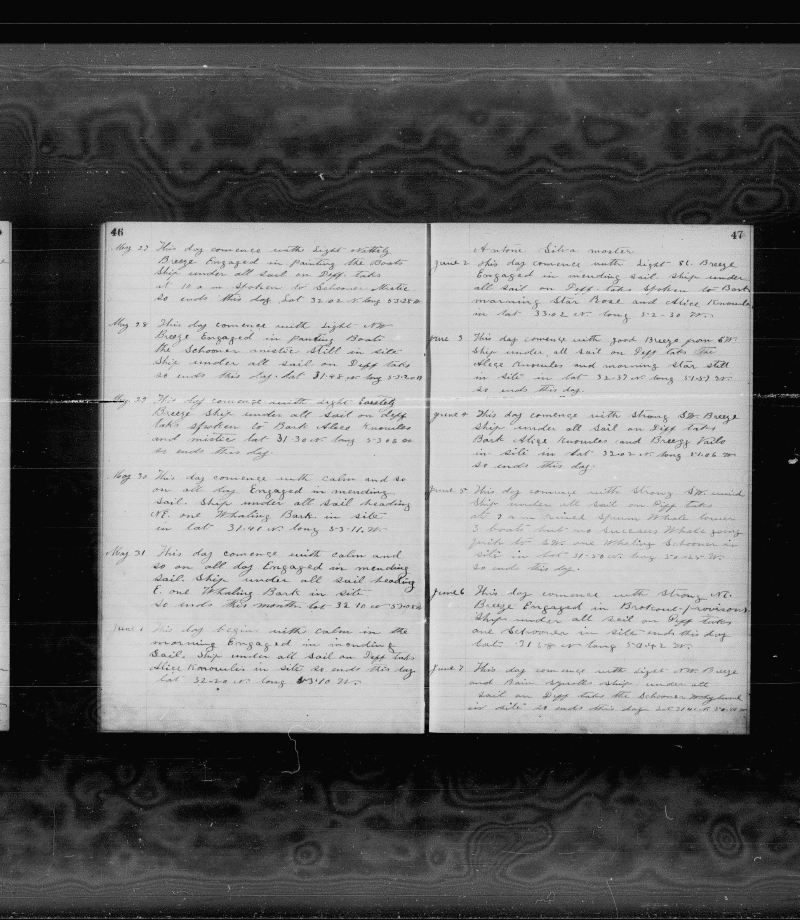 46
May 27 This day comence with Light
Breeze Engaged in Painting the Boats
Ship under all sail on Diff taks
at 10 a m spoken to Schooner Mistic
so ends this day Lat 32-02 N. long
May 28 This day comence with Light NW
Breeze Engaged in Panting Boats
the Schooner mistic still in site
Ship under all sail on Diff taks
so ends this day. Lat 31-48 N long
May 29 This day comence with Light Easterly
Breeze Ship under all sail on diff
taks spoken to Bark Alice Knowles
and mistic lat 31-30 N long
so ends this day.
May 30 This day comence with Calm and so
on all day Engaged in mending
sail. Ship under all sail heading
NE. one Whaling Bark in site
in lat 31-41 N long 53-11. W.
May 31 This day comence with calm and
so on all day Engaged in mending
sail. Ship under all sail heading
E. one Whaling Bark in site
so ends this month lat 32 10 N
June 1 This day begins with Calm in the
morning Engaged in mending
Sail. Ship under all sail on Diff taks
Alice Knowles in site so ends this day
lat 32-20 N. long 53-10 W.
47
Antone Silva master
June 2 This day comence with Light St. Breeze
Engaged in mending sail. Ship under
all sail on Diff taks spoken to Bark
morning Star Rose and Alice Knowles
in lat 33-02 N. long 52-30 W.
June 3 This day comence with good Breeze from SW.
Ship under all sail on Diff taks The
Alice Knowles and morning Star still
in site in lat 32-37 N. long 51-57 W.
so ends this day.
June 4 This day comence with Strong SW. Breeze
Ship under all sail on Diff taks
Bark Alice Knowles and Breezy
in site in lat 32-02 N. long 51-06 W
so ends this day.
June 5 This day comence with Strong SW. wind
Ship under all sail on Diff taks
at 9 a m raised Sperm Whale lower
3 boats but no success Whale going
quick to SW. one Whaling Schooner in
site in lat 31-50 N. long W.
so ends this day.
June 6 This day comence with Strong
Breeze Engaged in Brokout provisons
Ship under all sail on Diff taks
one Schooner in site ends this day
lat. 31-28 N long 50-42 W.
June 7 This day comence with Light NW. Breeze
and Rain squalls Ship under all
sail on Diff taks the Schooner
in site so ends this day